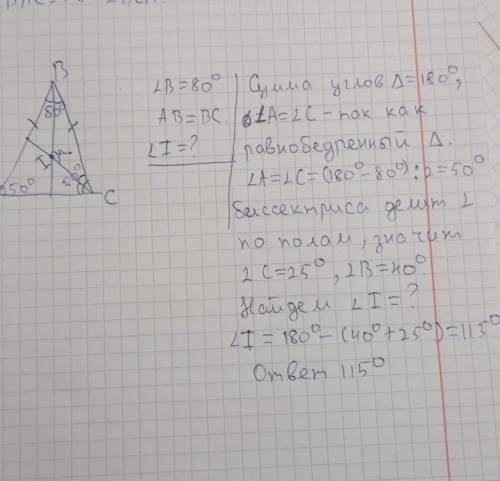 B
80°
I
50°
C
∠B=80°
AB=BC
∠I=?
Сума углов Δ=180°,
∠A=∠C - пок как
равнобедренный Δ.
∠A=∠C=(180°-80°):2=50°
биссектриса делит ∠
по полам, значит
∠C=25°, ∠B=40°
Найдем ∠I=?
∠I=180°-(40°+25°)=115°
Ответ 115°